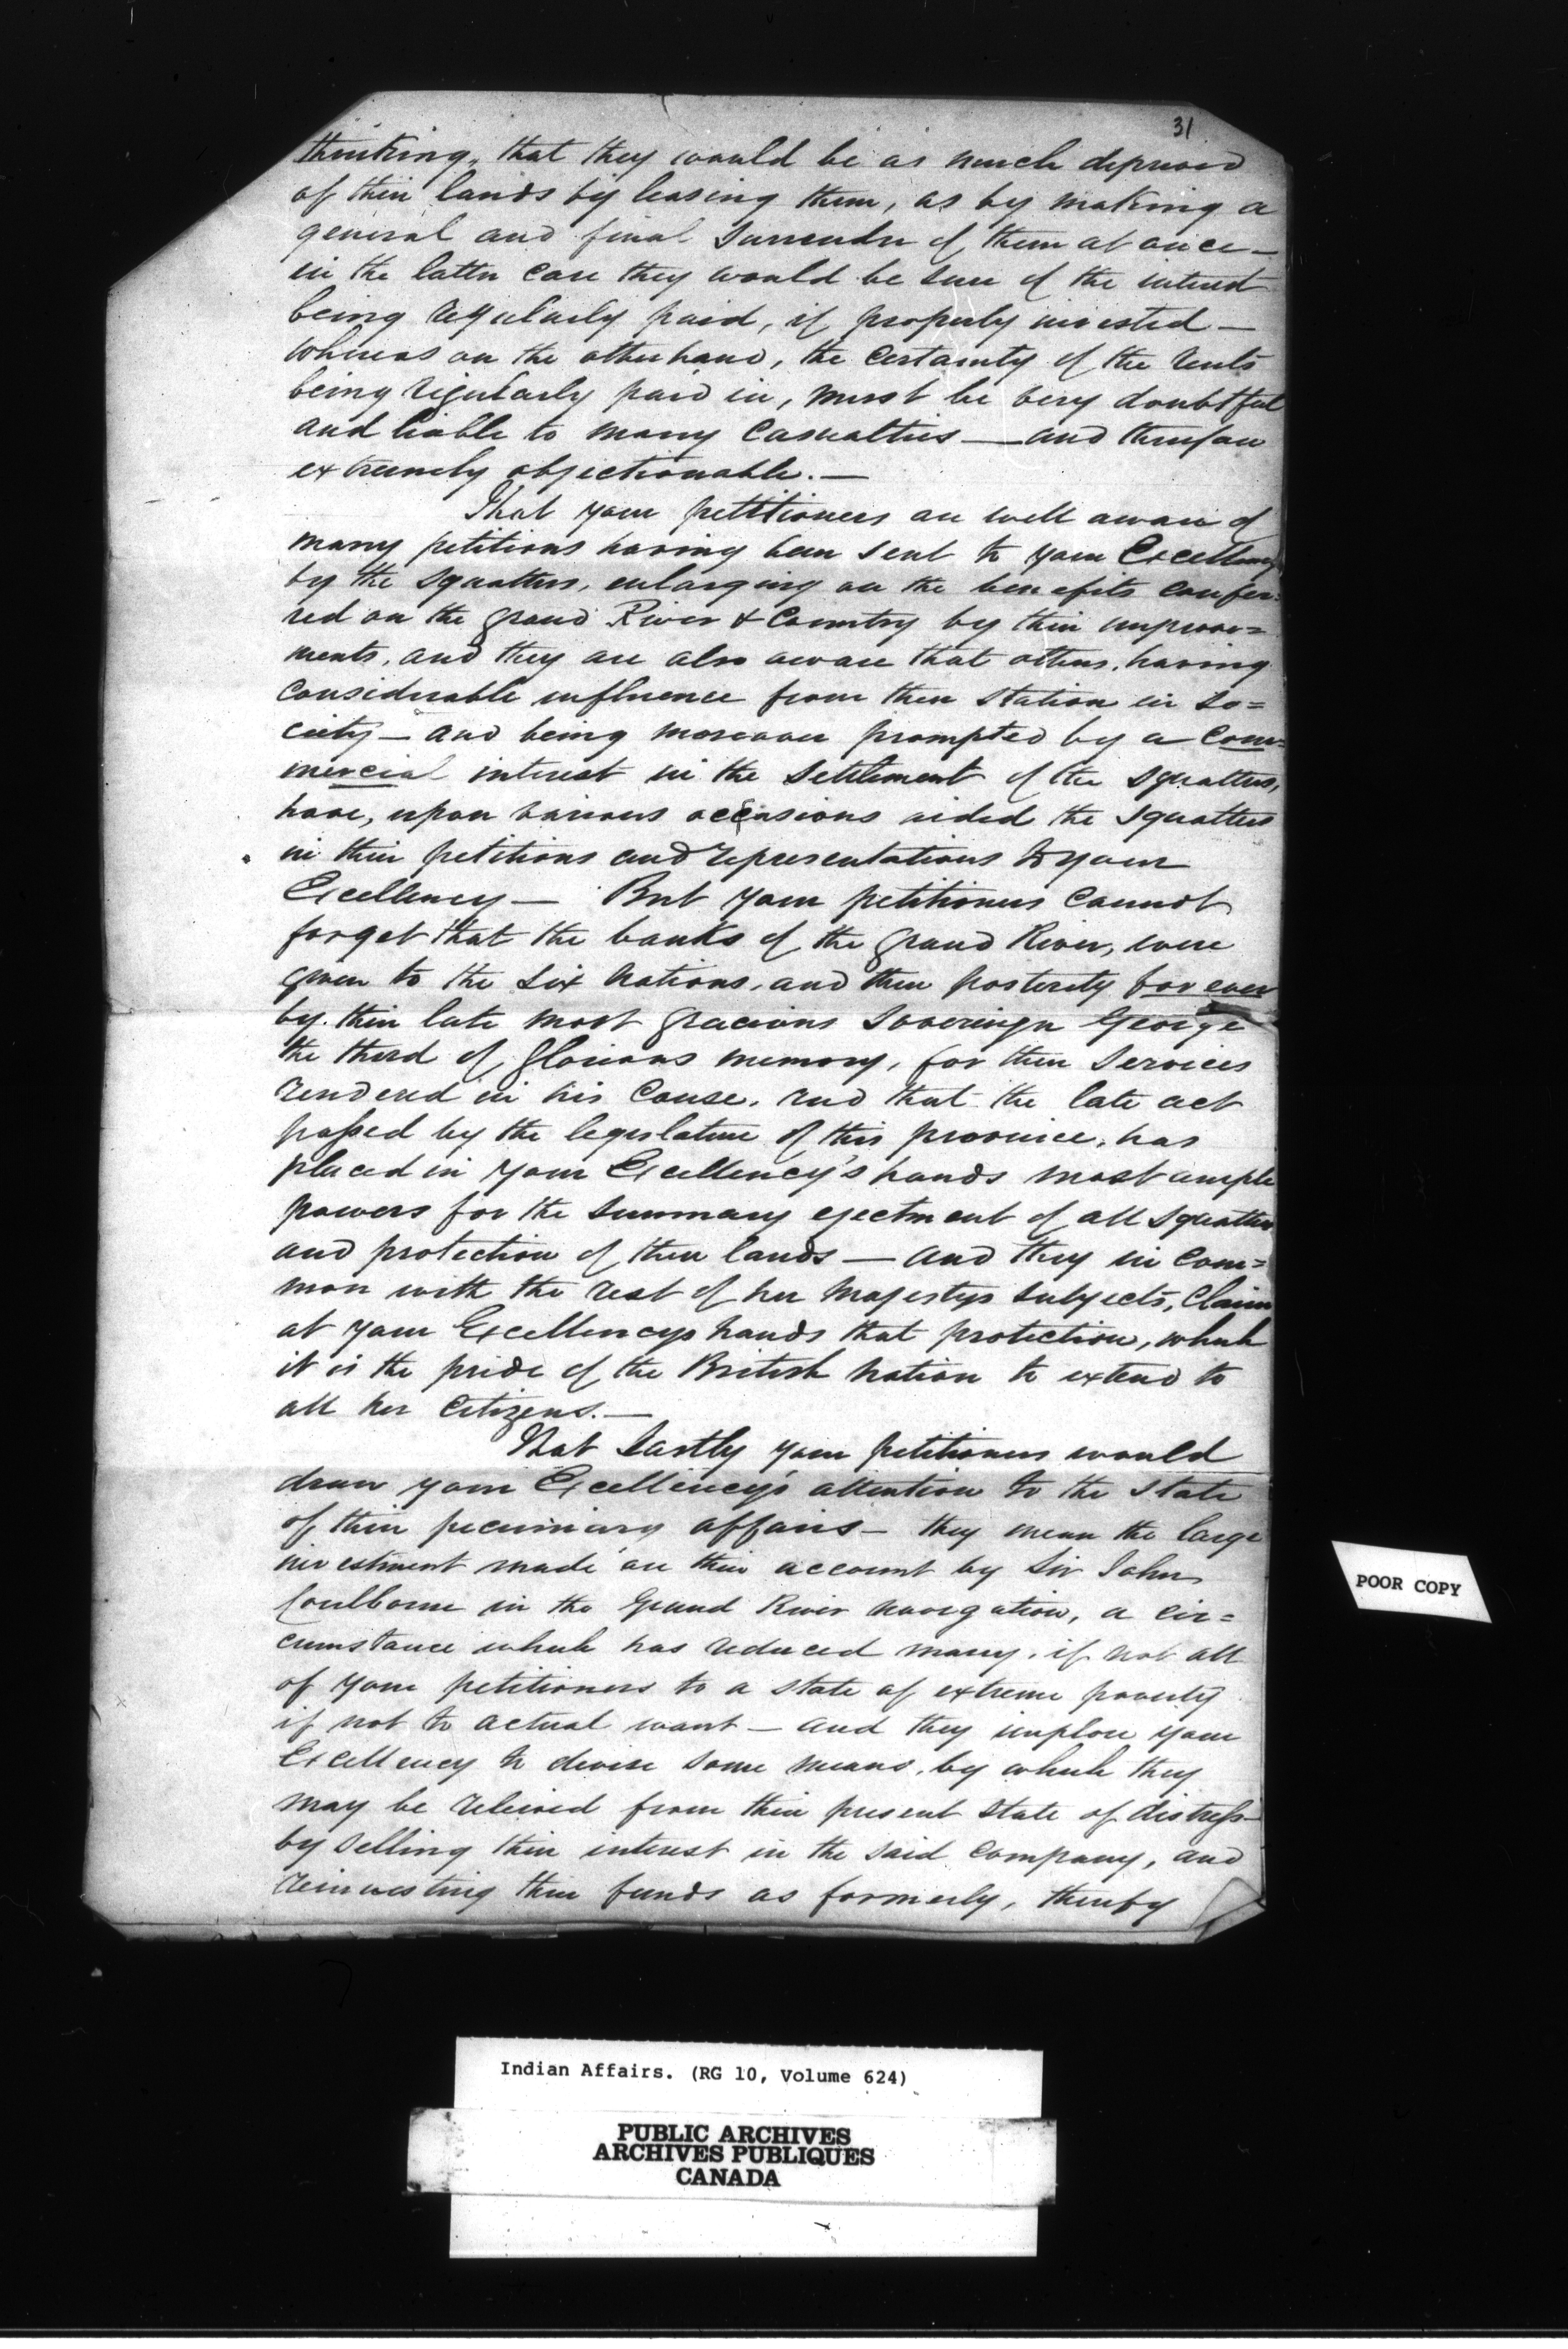 31
thinking, that they would be as much deprived
of their lands by leasing them, as by making a
general and final surrender of them at once —
in the latter case they would be sure of the interest
being regularly paid, if properly invested —
whereas on the other hand, the certainty of the rents
being regularly paid in, must be very doubtful
and liable to many casualties — and therefore
extremely objectionable. —
That your petitioners are well aware of
many petitions having been sent to your Excellency
by the squatters, enlarging on the benefits confer=
red on the grand River & Country by their improve=
ments, and they are also aware that others, having
considerable influence from their station in so=
ciety — and being moreover prompted by a com=
mercial interest in the settlement of the squatters,
have, upon various occasions aided the squatters
in their petitions and representations to your
Excellency — But your petitioners cannot
forget that the banks of the grand River, were
given to the Six Nations, and their posterity for ever
by their late most gracious Sovereign George
the third of glorious memory, for their services
rendered in his cause. and that the late act
passed by the legislature of this province, has
placed in your Excellency's hands most ample
powers for the summary ejectment of all squatters
and protection of their lands — and they in com=
mon with the rest of her Majestys subjects, claim
at your Excellencys hands that protection, which
it is the pride of the British Nation to extend to
all her citizens. —
That lastly your petitioners would
draw your Excellency's attention to the state
of their pecuniary affairs — they mean the large
investment made on their account by Sir John
Coulborne in the Grand River navigation, a cir=
cumstance which has reduced many, if not all
of your petitioners to a state of extreme poverty
if not to actual want — and they implore your
Excellency to devise some means, by which they
may be releived from their present state of distress
by selling their interest in the said Company, and
reinvesting their funds as formerly, thereby
POOR COPY
Indian Affairs. (RG 10, Volume 624)
PUBLIC ARCHIVES
ARCHIVES PUBLIQUES
CANADA